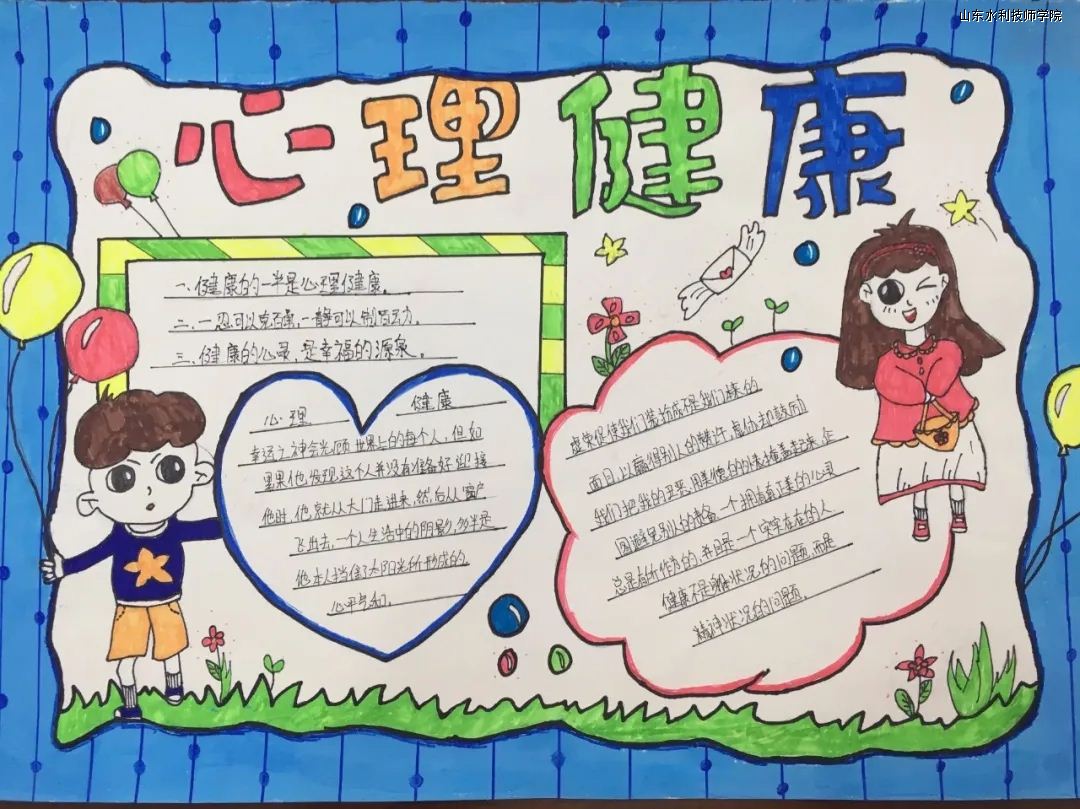 山东水利技师学院
心理健康
一、健康的一半是心理健康。
二、一忍可以克百勇,一静可以制百动。
三、健康的心灵,是幸福的源泉。
心理 健康
幸运之神会光顾世界上的每个人,但如
里果他发现这个人并没有准备好迎接
他时,他就从大门走进来,然后从窗户
飞出去,一个人生活中的阴影,多半是
他本人挡住了太阳光所形成的。
心平气和。
虚荣促使我们装扮成不是我们原来的
面目,以赢得别人的赞许,虚伪却鼓励
我们把我的丑恶,用美德的的表掩盖起来,企
图避免别人的责备。一个拥有真美的心灵
总是有所作为的,并且是一个实实在在的人.
健康不是躯状况的问题,而是
精神状况的问题.